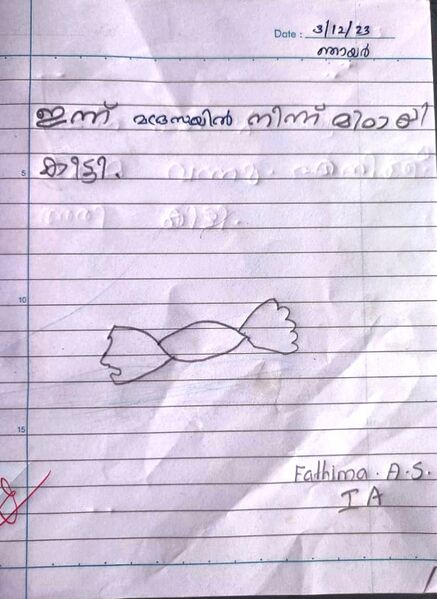 Date : 3/12/23
ഞായർ
ഇന്ന് മദ്രസയിൽ നിന്ന് മിഠായി
കിട്ടി.
5
10
15
Fathima. A. S.
I A